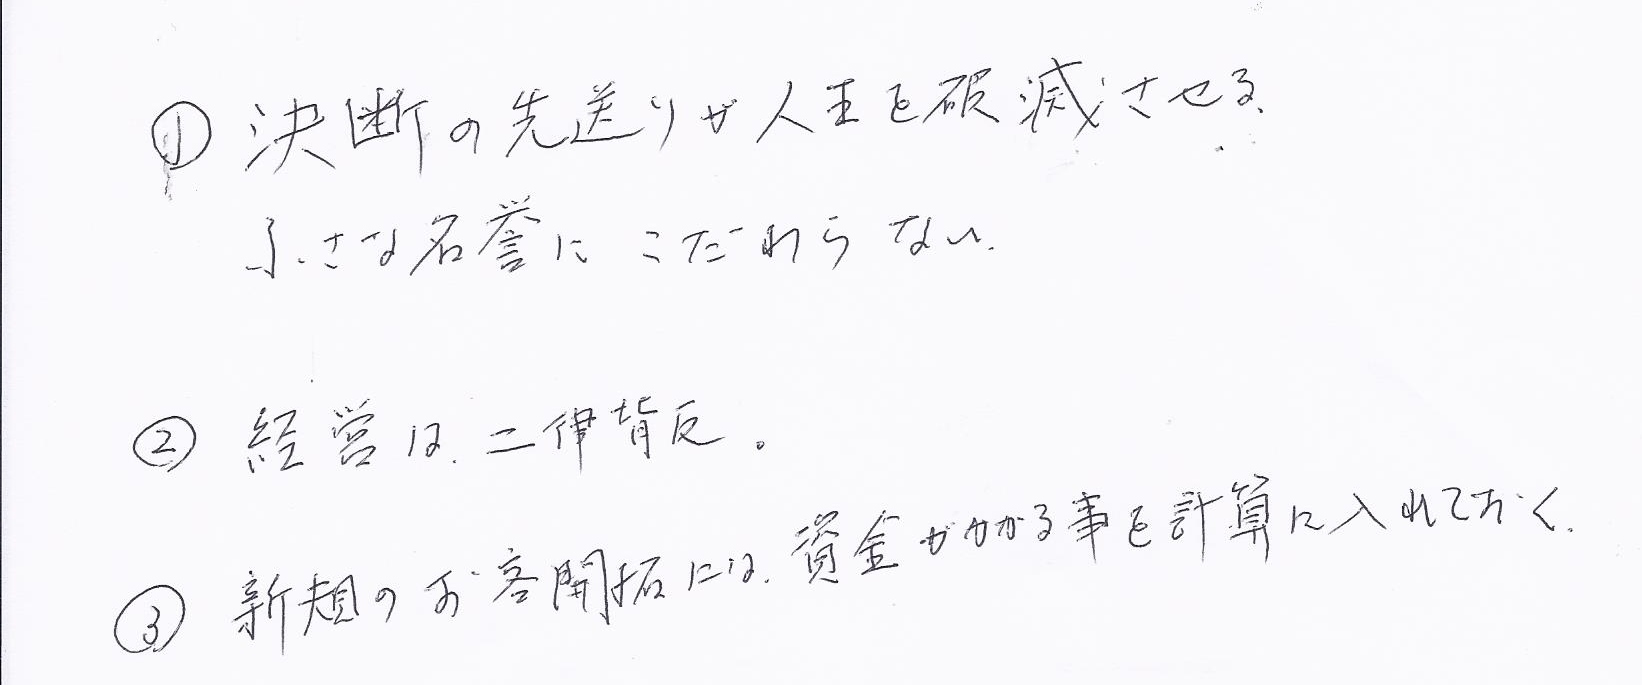 ① 決断の先送りが人生を破滅させる、
小さな名誉にこだわらない.
② 経営は、二律背反。
③ 新規のお客開拓には、資金がかかる事を計算に入れておく.